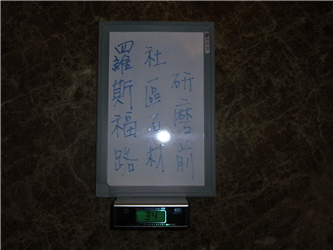 羅斯福路
社區石材
研磨前